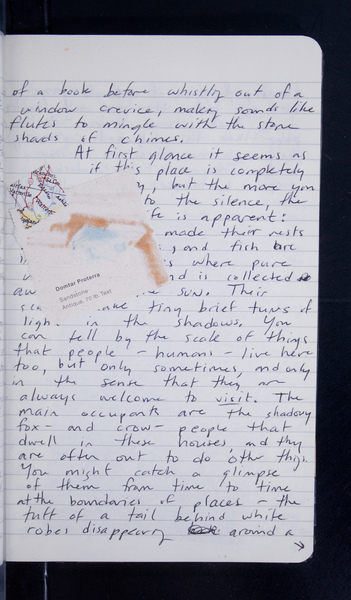 of a book before whistly out of a
window crevice, makeg sounds like
flutes to mingle with the stone
shards of chimes.
At first glance it seems as
if this place is completely
, but the more you
to the silence, the
fe is apparent:
made their nests
, and fish are
s where pure
nd is collected
the sun. Their
tiny brief tunes of
light in the shadows. You
can tell by the scale of things
that people - humans - live here
too, but only sometimes, and only
in the sense that they are
always welcome to visit. The
main occupants are the shadowy
fox- and crow- people that
dwell in these houses and they
are often out to do other things.
You might catch a glimpse
of them from time to time
at the boundaries of places - the
tuft of a tail behind white
robes disappearg around a
Domtar Proterra
Sandstone
Antique, 70 lb. Text